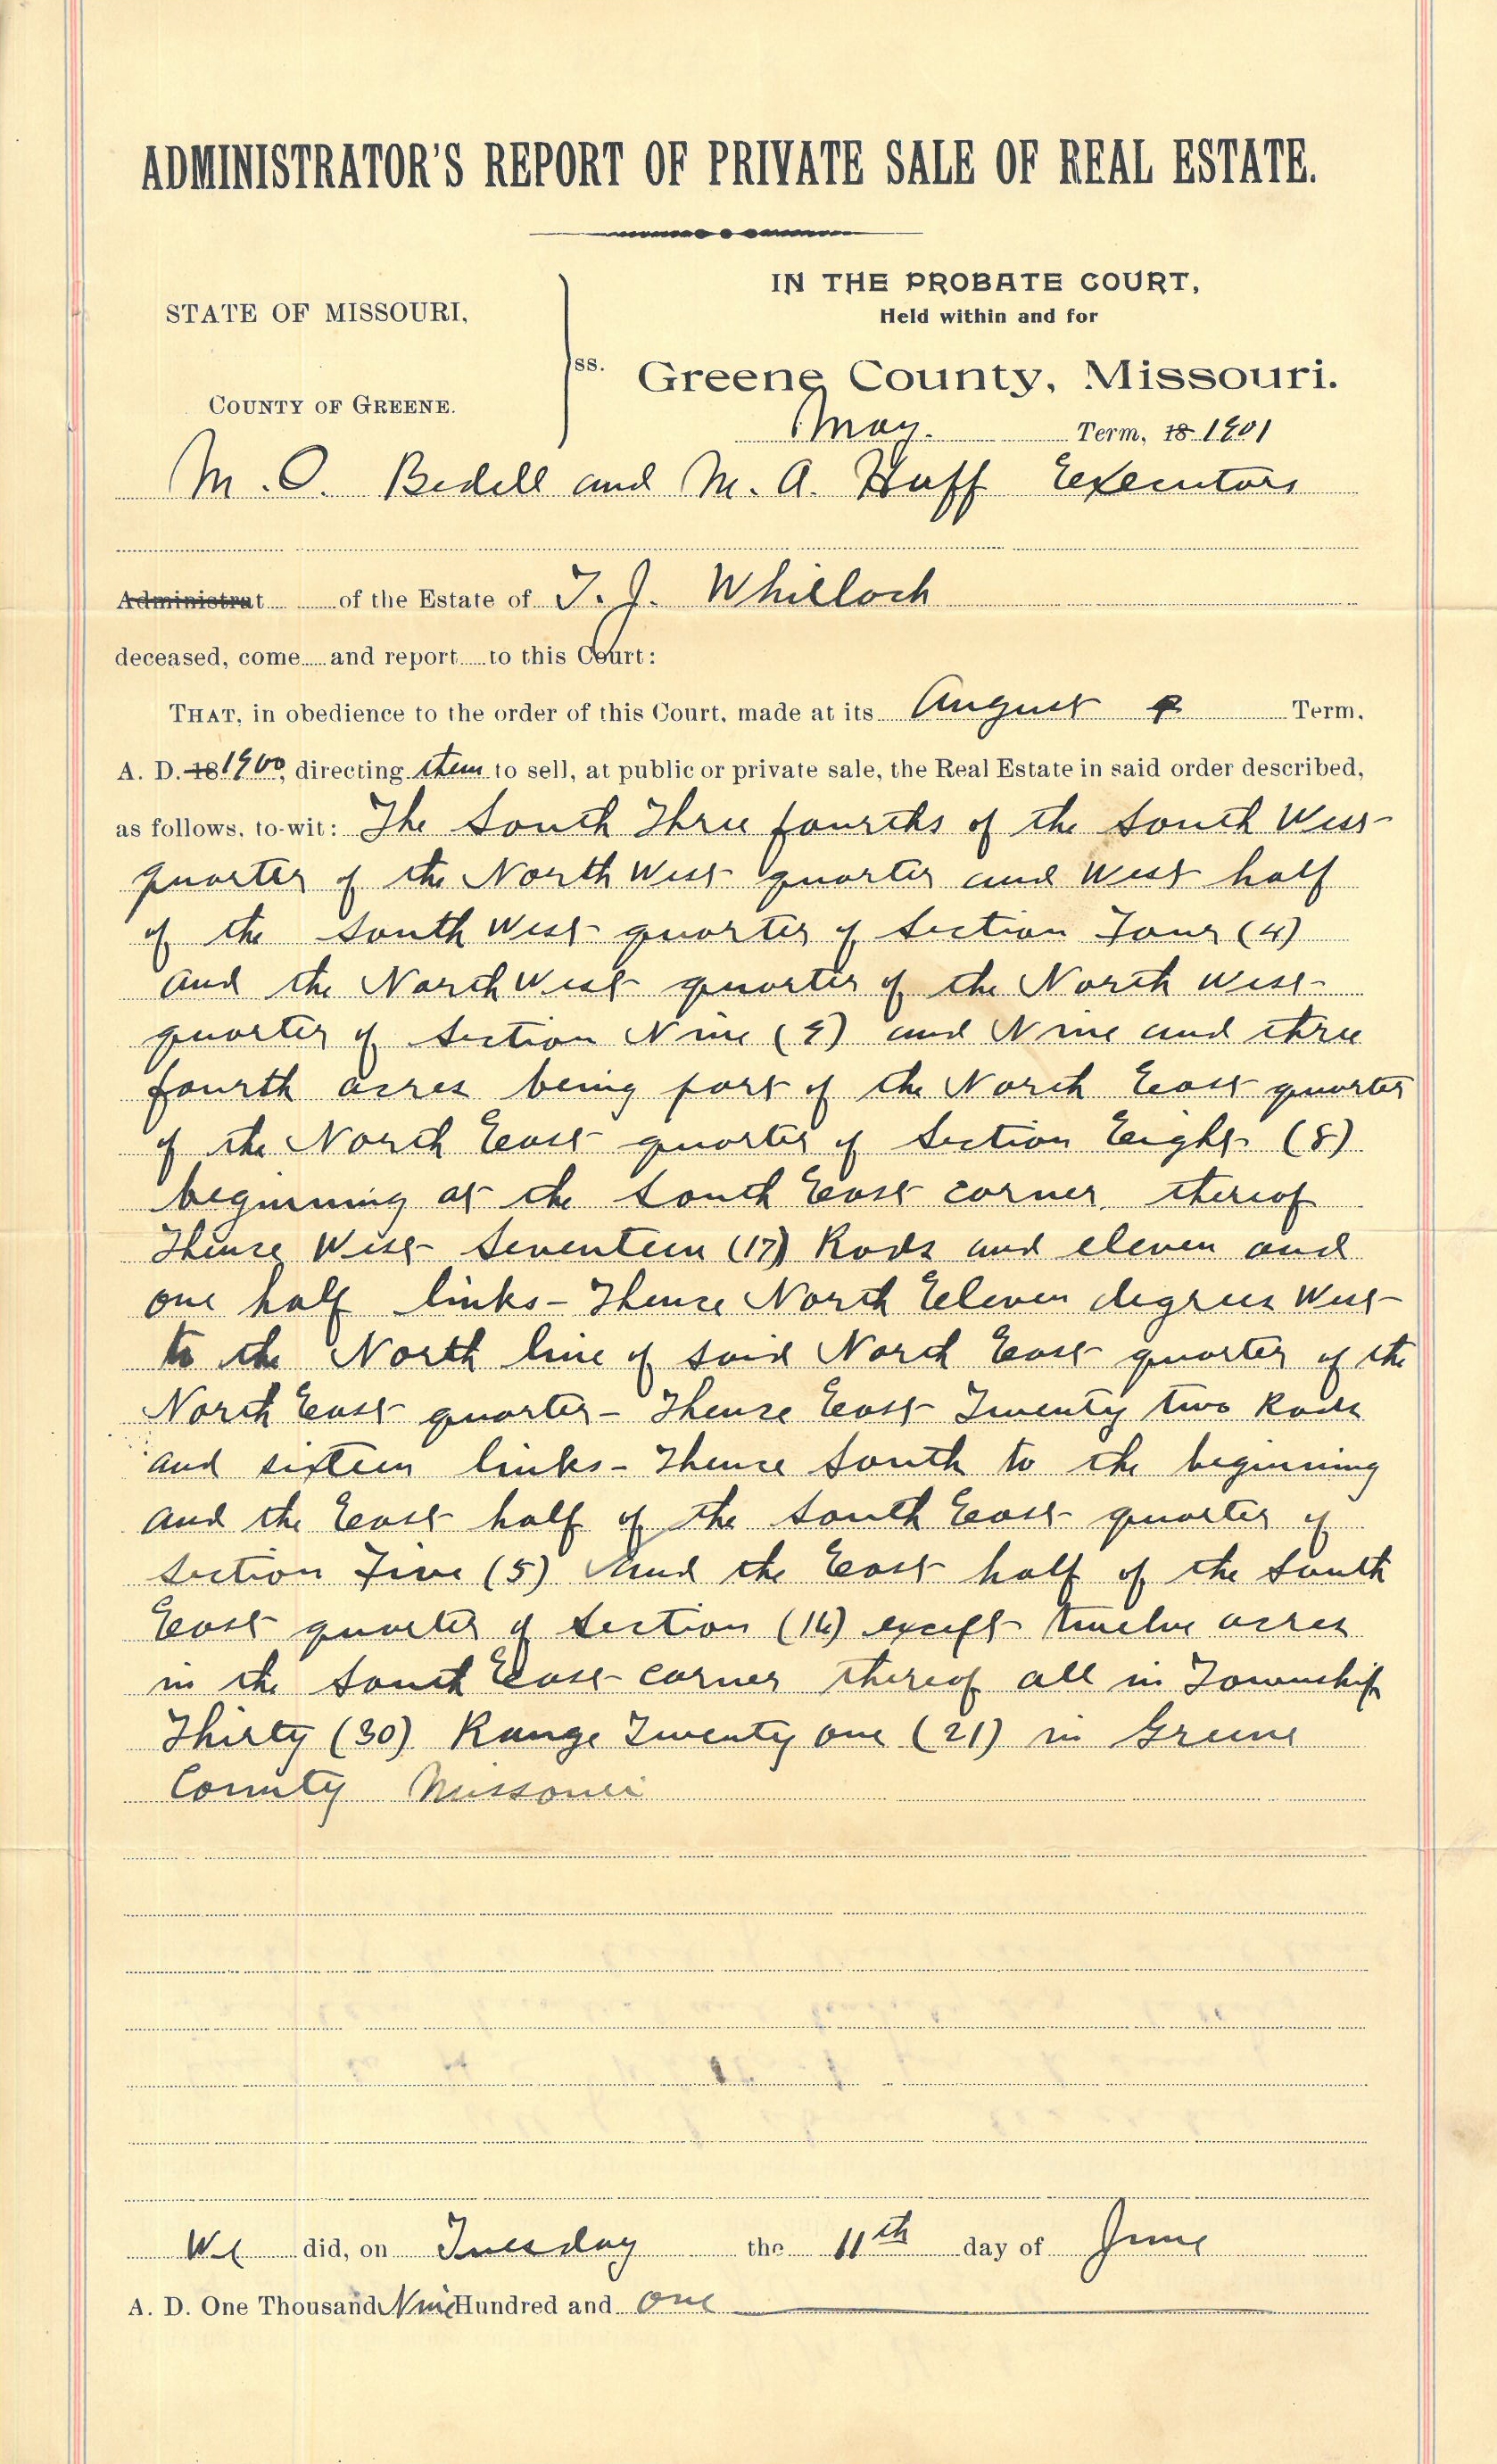 ADMINISTRATOR'S REPORT OF PRIVATE SALE OF REAL ESTATE.
STATE OF MISSOURI,
COUNTY OF GREENE.
ss.
IN THE PROBATE COURT,
Held within and for
Greene County, Missouri.
May. Term, 18 1901
M. O. Bedell and M. A. Huff Executors
Administrat of the Estate of T. J. Whillock
deceased, come and report to this Court:
THAT, in obedience to the order of this Court, made at its August Term,
A. D. 18 1900, directing them to sell, at public or private sale, the Real Estate in said order described,
as follows, to-wit: The South Three fourths of the South West
quarter of the North West quarter and West half
of the South West quarter of Section Four (4)
and the North West quarter of the North West
quarter of Section Nine (9) and Nine and three
fourth acres being part of the North East quarter
of the North East quarter of Section Eight (8)
beginning at the South East corner thereof
Thence West Seventeen (17) Rods and eleven and
one half links - Thence North Eleven degrees West
to the North line of said North East quarter of the
North East quarter - Thence East Twenty two Rods
and sixteen links - Thence South to the beginning
and the East half of the South East quarter of
Section Five (5) and the East half of the South
East quarter of Section except twelve acres
in the South East corner thereof all in Township
Thirty (30) Range Twenty one (21) in Greene
County Missouri
We did, on Tuesday the 11th day of June
A. D. One Thousand Nine Hundred and One